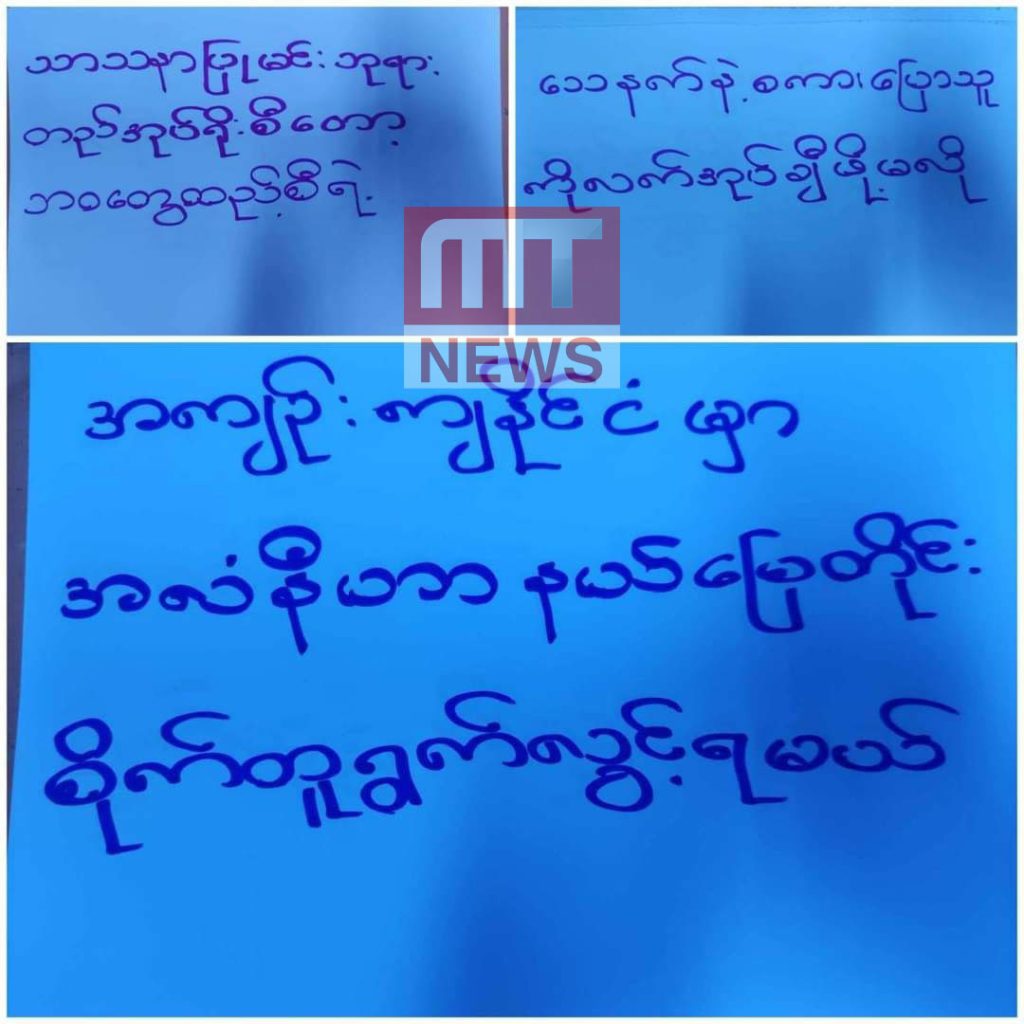 သာသနာပြုမင်း ဘုရား
တည်အုပ်ရိုး စီတော့
ဘဝတွေဆည့်စီရဲ့
သေနတ်နဲ့ စကားပြောသူ
ကိုလက်အုပ်ချီဖို့မလို
MIT
NEWS
အကျဉ်းကျနိုင်ငံမှာ
အလံနီဟာ နယ်မြေတိုင်း
စိုက်တူရွက်လွှင့်ရမယ်